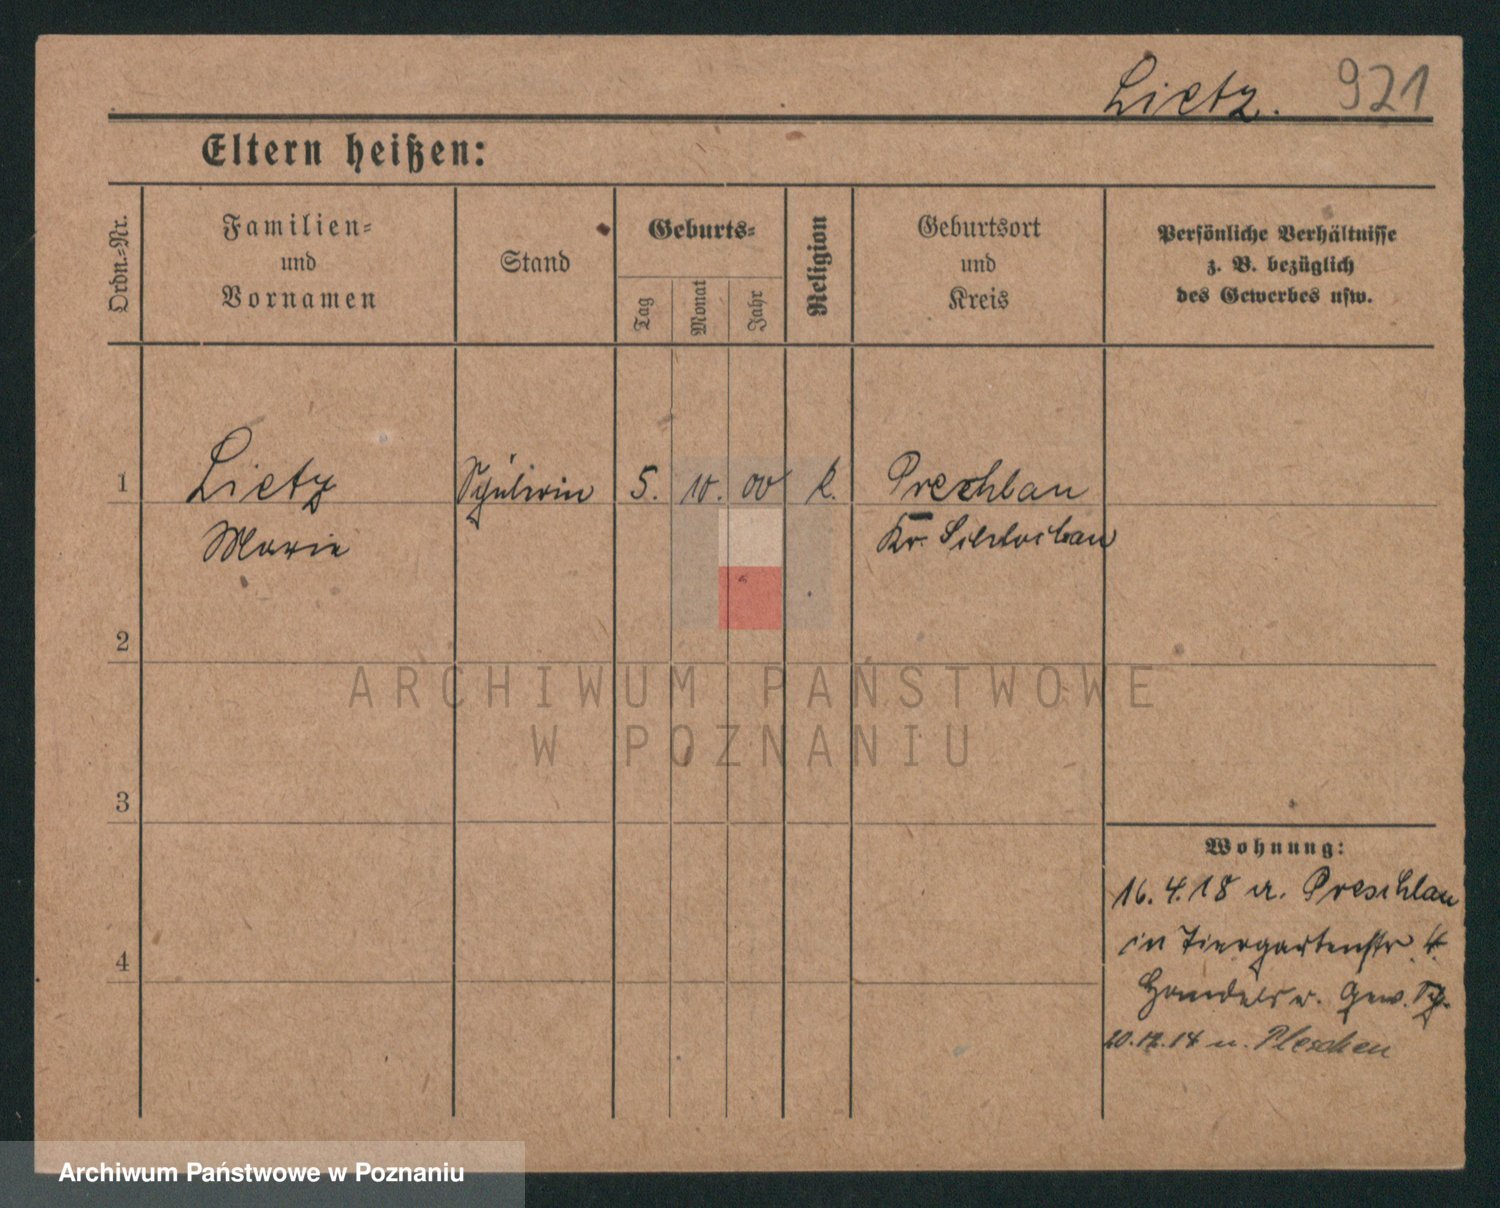 Lietz. 921
Eltern heißen:
Ordn.-Nr.
Familien-
und
Vornamen
Stand
Geburts-
Tag
Monat
Jahr
Religion
Geburtsort
und
Kreis
Persönliche Verhältnisse
z. B. bezüglich
des Gewerbes usw.
1 Lietz Schülerin 5. 10. 00 k. Prechlau
Marie Kr. Schlochau
2
3
4
Wohnung:
16.4.18 a. Preschlau
in Tiergartenstr. 4.
Handels u. Gew. Sch.
20.12.18 n. Pleschen
ARCHIWUM PAŃSTWOWE
W POZNANIU
Archiwum Państwowe w Poznaniu